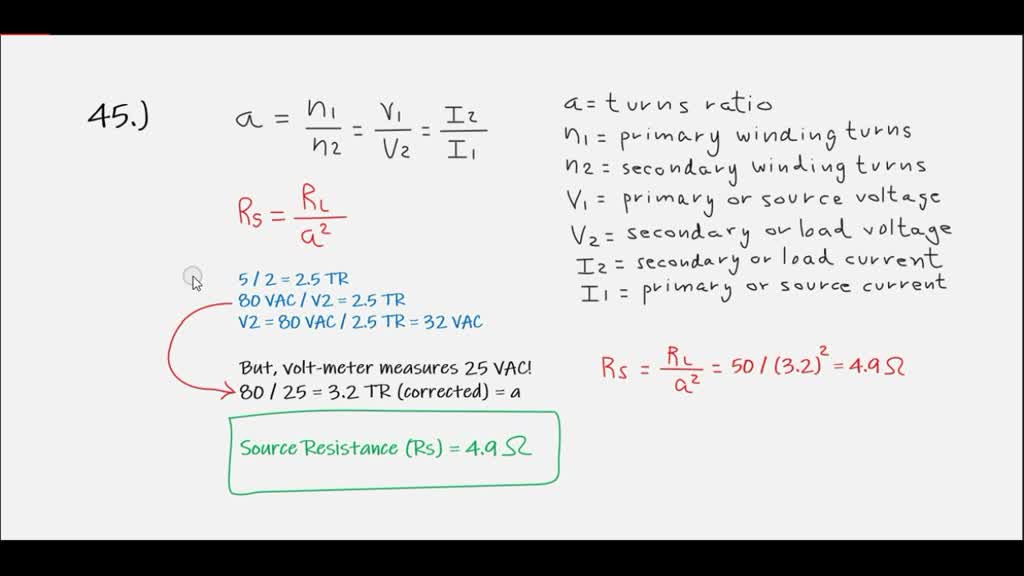 45.)
a = n1/n2 = V1/V2 = I2/I1
Rs = RL/a²
5 / 2 = 2.5 TR
80 VAC / V2 = 2.5 TR
V2 = 80 VAC / 2.5 TR = 32 VAC
But, volt-meter measures 25 VAC!
80 / 25 = 3.2 TR (corrected) = a
Source Resistance (Rs) = 4.9 Ω
a = turns ratio
n1 = primary winding turns
n2 = secondary winding turns
V1 = primary or source voltage
V2 = secondary or load voltage
I2 = secondary or load current
I1 = primary or source current
Rs = RL/a² = 50 / (3.2)² = 4.9 Ω